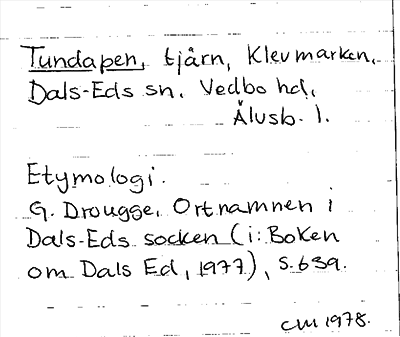 Tundapen, tjärn, Klevmarken,
Dals-Eds sn. Vedbo hd,
Älvsb. l.
Etymologi.
G. Drougge, Ortnamnen i
Dals-Eds socken (i: Boken
om Dals Ed, 1977), s. 639.
CM 1978.